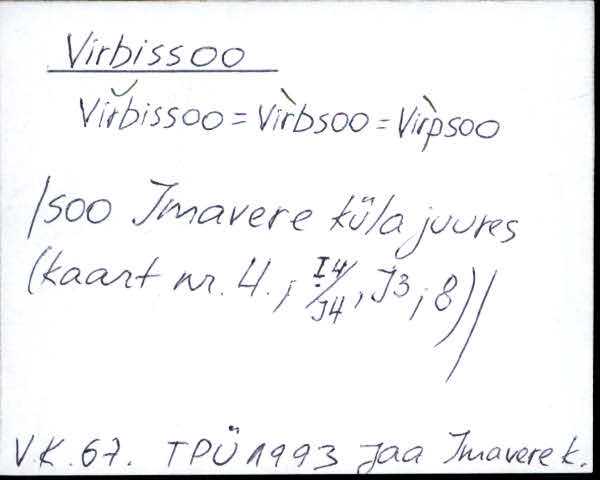 Virbissoo
Vir̆bissoo = Vir̀bsoo = Vir̀psoo
/soo Imavere küla juures
(kaart nr. 4. ; I4/J4, J3 ; 8)/
V.K. 67. TPÜ 1993 Jaa Imavere k.